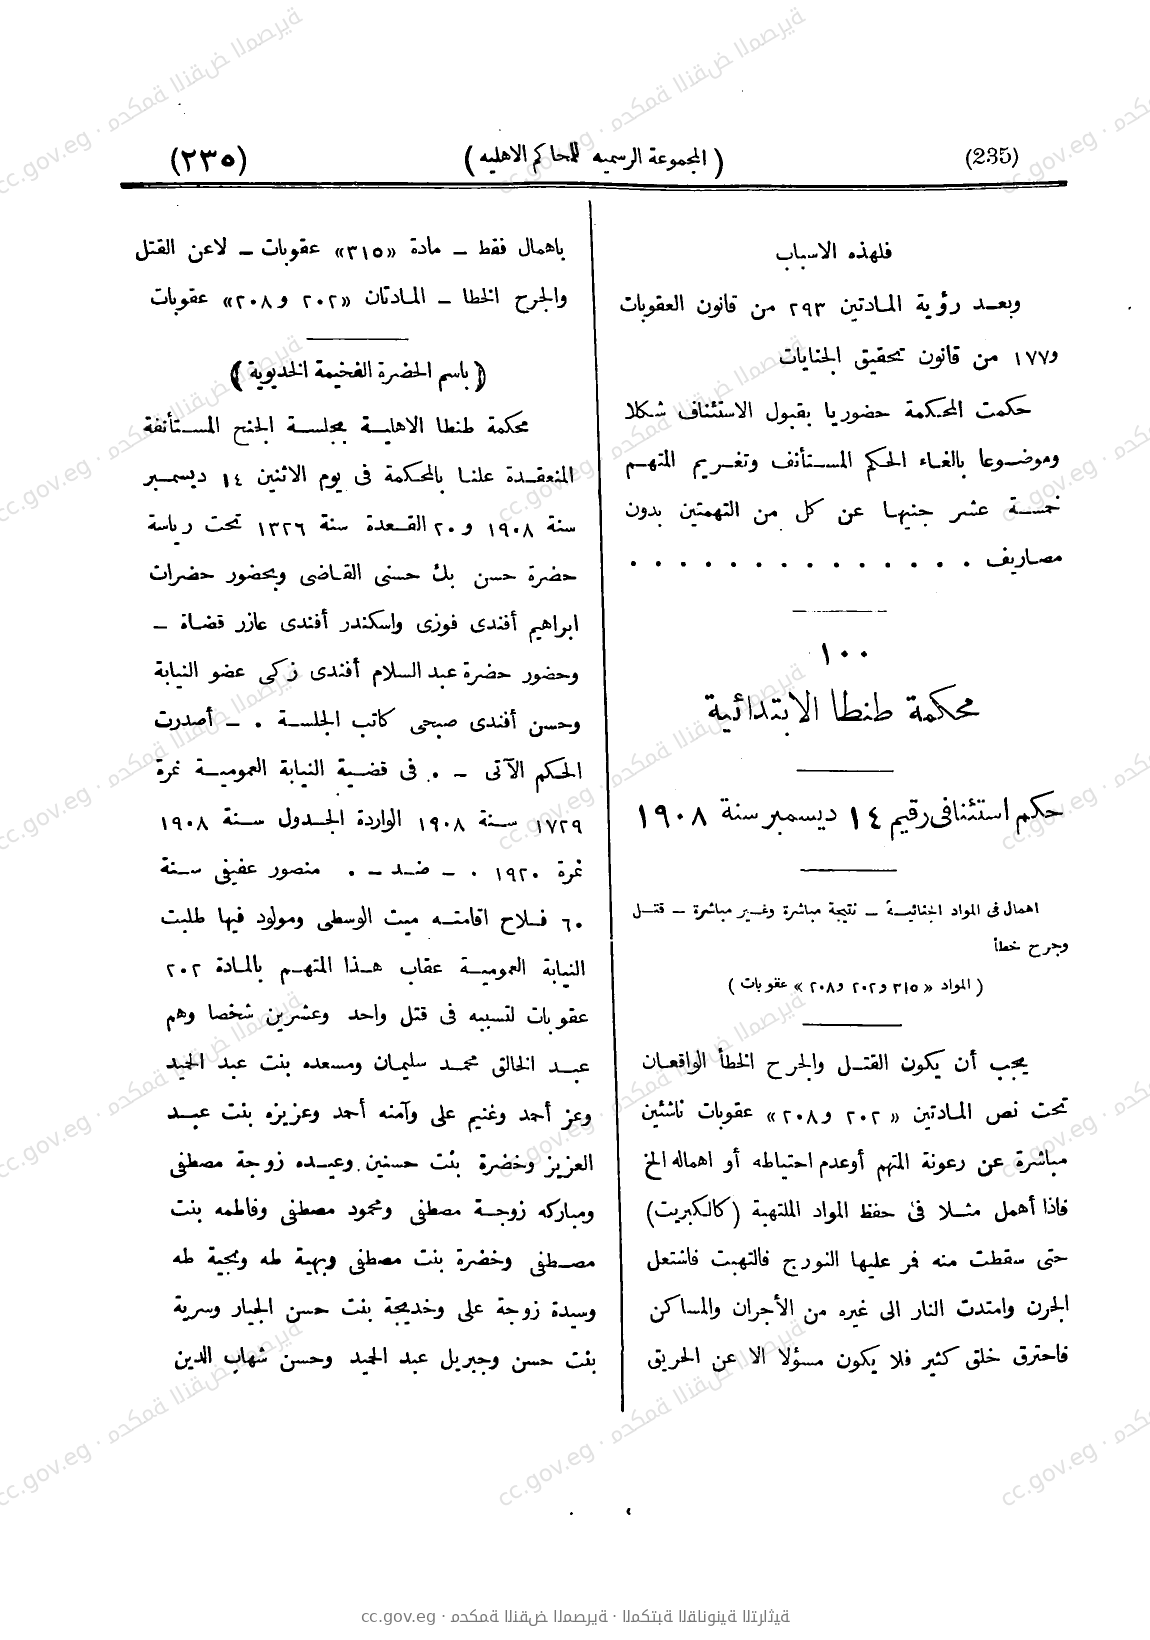 (235)
( المجموعة الرسميه للمحاكم الاهليه )
(٢٣٥)
فلهذه الاسباب
وبعد رؤية المادتين ٢٩٣ من قانون العقوبات
و١٧٧ من قانون تحقيق الجنايات
حكمت المحكمة حضوريا بقبول الاستئناف شكلا
وموضوعا بالغاء الحكم المستأنف وتغريم المتهم
خمسة عشر جنيها عن كل من التهمتين بدون
مصاريف . . . . . . . . . . . . . .
١٠٠
محكمة طنطا الابتدائية
حكم استئنافى رقيم ١٤ ديسمبر سنة ١٩٠٨
اهمال فى المواد الجنائية – نتيجة مباشرة وغير مباشرة – قتل
وجرح خطأ
( المواد « ٣١٥ و٢٠٢ و٢٠٨ » عقوبات )
يجب أن يكون القتل والجرح الخطأ الواقعان
تحت نص المادتين « ٢٠٢ و٢٠٨ » عقوبات ناشئين
مباشرة عن رعونة المتهم أوعدم احتياطه أو اهماله الخ
فاذا أهمل مثلا فى حفظ المواد الملتهبة (كالكبريت)
حتى سقطت منه فر عليها النورج فالتهبت فاشتعل
الجرن وامتدت النار الى غيره من الأجران والمساكن
فاحترق خلق كثير فلا يكون مسؤلا الا عن الحريق
باهمال فقط – مادة «٣١٥» عقوبات – لاعن القتل
والجرح الخطا – المادتان «٢٠٢ و٢٠٨» عقوبات
( باسم الحضرة الفخيمة الخديوية )
محكمة طنطا الاهلية بجلسة الجنح المستأنفة
المنعقدة علنا بالمحكمة فى يوم الاثنين ١٤ ديسمبر
سنة ١٩٠٨ و ٢٠ القعدة سنة ١٣٢٦ تحت رياسة
حضرة حسن بك حسنى القاضى وبحضور حضرات
ابراهيم أفندى فوزى واسكندر أفندى عازر قضاة –
وحضور حضرة عبد السلام أفندى زكى عضو النيابة
وحسن أفندى صبحى كاتب الجلسة . – أصدرت
الحكم الآتى – . فى قضية النيابة العمومية نمرة
١٧٢٩ سنة ١٩٠٨ الواردة الجدول سنة ١٩٠٨
نمرة ١٩٢٠ . – ضد – . منصور عفيفى سنة
٦٠ فلاح اقامته ميت الوسطى ومولود فيها طلبت
النيابة العمومية عقاب هذا المتهم بالمادة ٢٠٢
عقوبات لتسببه فى قتل واحد وعشرين شخصا وهم
عبد الخالق محمد سليمان ومسعده بنت عبد المجيد
وعز أحمد وغنيم على وآمنه أحمد وعزيزه بنت عبد
العزيز وخضرة بنت حسنين وعيده زوجة مصطفى
ومباركه زوجة مصطفى ومحمود مصطفى وفاطمه بنت
مصطفى وخضرة بنت مصطفى وبهية طه ونجية طه
وسيدة زوجة على وخديجة بنت حسن الجيار وسرية
بنت حسن وجبريل عبد المجيد وحسن شهاب الدين
cc.gov.eg · محكمة النقض المصرية · المكتبة القانونية التراثية